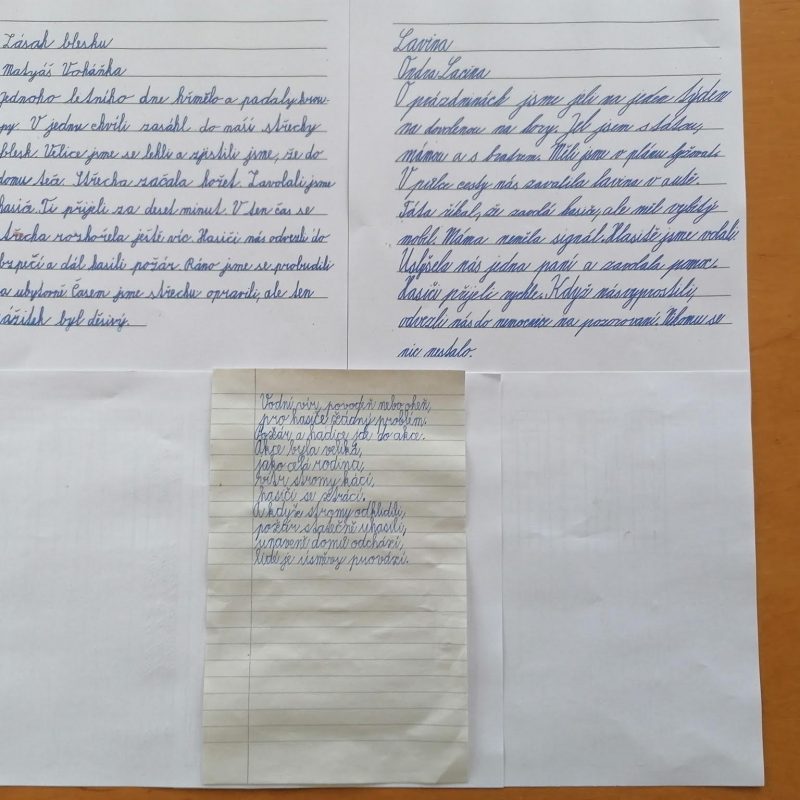 Zásah blesku
Matyáš Voháňka
Jednoho letního dne hřmělo a padaly krou-
py. V jednu chvíli zasáhl do naší střechy
blesk. Velice jsme se lekli a zjistili jsme, že do
domu teče. Střecha začala hořet. Zavolali jsme
hasiče. Ti přijeli za deset minut. V ten čas se
střecha rozhořela ještě víc. Hasiči nás odvezli do
bezpečí a dál hasili požár. Ráno jsme se probudili
a ubytovně. Časem jsme střechu opravili, ale ten
zážitek byl děsivý.
Lavina
Ondra Lacina
O prázdninách jsme jeli na jeden týden
na dovolenou na hory. Jel jsem s tátou,
mámou a s bratrem. Měli jsme v plánu lyžovat.
V půlce cesty nás zavalila lavina v autě.
Táta říkal, že zavolá hasiče, ale měl vybitý
mobil. Máma neměla signál. Hlasitě jsme volali.
Uslyšela nás jedna paní a zavolala pomoc.
Hasiči přijeli rychle. Když nás vyprostili,
odvezli nás do nemocnice na pozorovaní. Nikomu se
nic nestalo.
Vodní vír, povodeň nebo oheň,
pro hasiče žádný problém.
Požár a hadice jde do akce.
Akce byla veliká,
jako celá rodina,
vítr stromy kácí,
hasiči se ztrácí.
A když stromy odklidili,
požár statečně uhasili,
unavení domů odchází,
lidé je úsměvy provází.